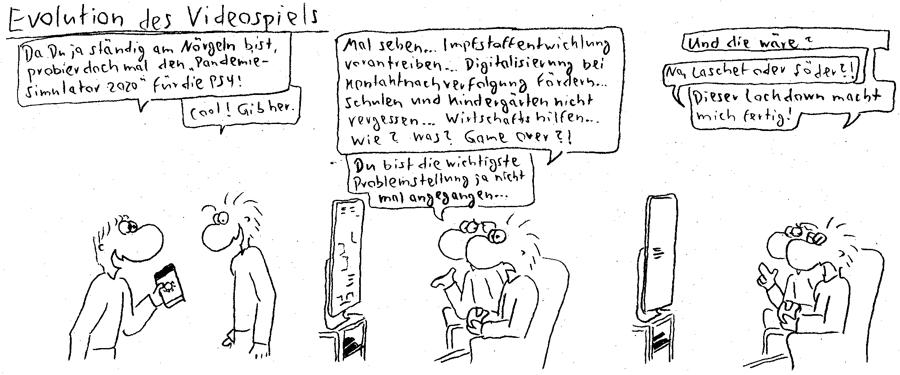 Evolution des Videospiels
Da Du ja ständig am Nörgeln bist,
probier doch mal den „Pandemie-
simulator 2020“ für die PS4!
Cool! Gib her.
Mal sehen... Impfstoffentwicklung
vorantreiben... Digitalisierung bei
Kontaktnachverfolgung fördern...
Schulen und Kindergärten nicht
vergessen... Wirtschaftshilfen...
Wie? Was? Game Over?!
Du bist die wichtigste
Problemstellung ja nicht
mal angegangen...
Und die wäre?
Na, Laschet oder Söder?!
Dieser Lockdown macht
mich fertig!